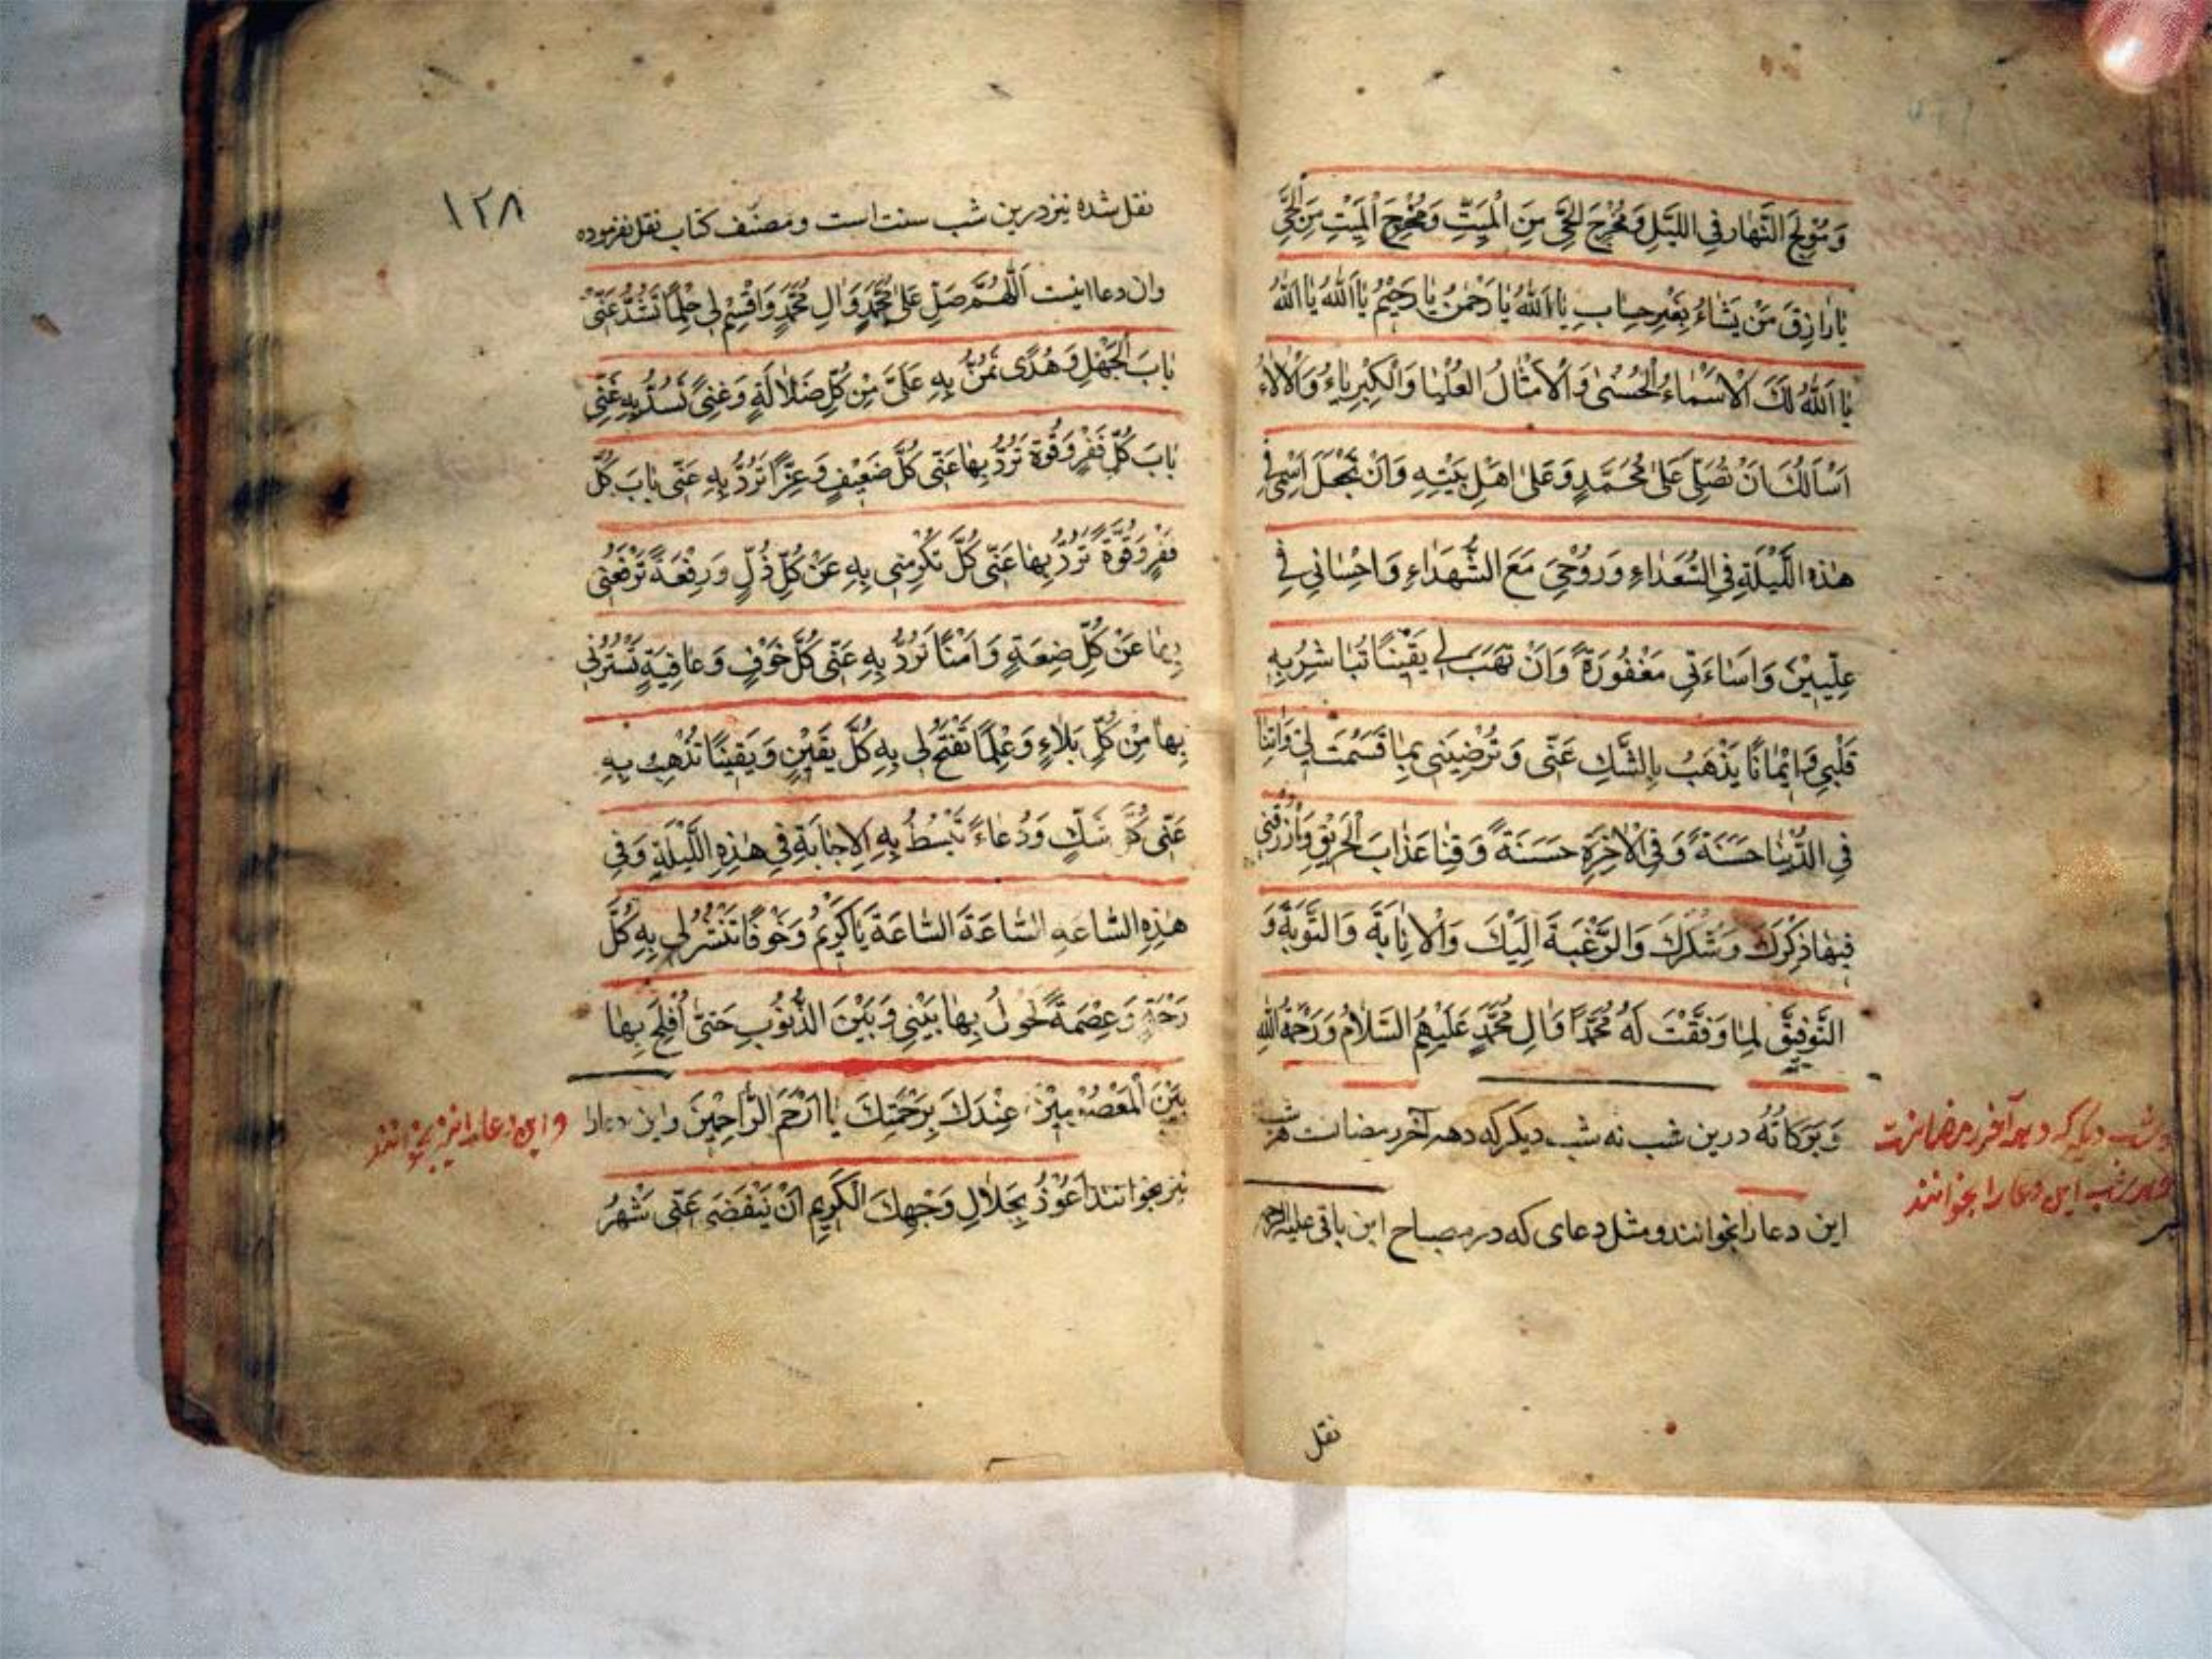 وَمُوْلِجَ النَّهٰارِ فِي اللَّيْلِ وَمُخْرِجَ الْحَيِّ مِنَ الْمَيِّتِ وَمُخْرِجَ الْمَيِّتِ مِنَ الْحَيِّ
يٰا رٰازِقَ مَنْ يَشٰاءُ بِغَيْرِ حِسٰابٍ يٰا اَللّٰهُ يٰا رَحْمٰنُ يٰا رَحِيْمُ يٰا اَللّٰهُ يٰا اَللّٰهُ
يٰا اَللّٰهُ لَكَ الْاَسْمٰاءُ الْحُسْنٰى وَالْاَمْثٰالُ الْعُلْيٰا وَالْكِبْرِيٰاءُ وَالْاٰلٰاءُ
اَسْاَلُكَ اَنْ تُصَلِّيَ عَلىٰ مُحَمَّدٍ وَعَلىٰ اَهْلِ بَيْتِهِ وَاَنْ تَجْعَلَ اسْمِي فِي
هٰذِهِ اللَّيْلَةِ فِي السُّعَدٰاءِ وَرُوْحِيْ مَعَ الشُّهَدٰاءِ وَاِحْسٰانِي فِي
عِلِّيِّيْنَ وَاِسٰاءَتِي مَغْفُورَةً وَاَنْ تَهَبَ لِي يَقِيْنًا تُبٰاشِرُ بِهِ
قَلْبِي وَاِيْمٰانًا يَذْهَبُ بِالشَّكِ عَنِّى وَتُرْضِيَنِي بِمٰا قَسَمْتَ لِي وَاٰتِنٰا
فِي الدُّنْيٰا حَسَنَةً وَفِي الْاٰخِرَةِ حَسَنَةً وَقِنٰا عَذٰابَ الْحَرِيْقِ وَارْزُقْنِي
فِيْهٰا ذِكْرَكَ وَشُكْرَكَ وَالرَّغْبَةَ اِلَيْكَ وَالْاِنٰابَةَ وَالتَّوْبَةَ وَ
التَّوْفِيْقَ لِمٰا وَفَّقْتَ لَهُ مُحَمَّدًا وَاٰلِ مُحَمَّدٍ عَلَيْهِمُ السَّلٰامُ وَرَحْمَةُ اللّٰهِ
وَبَرَكٰاتُهُ درين شب نه شب ديكر كه دهه آخر رمضانست هر شب
اين دعا را بخوانند و مثل دعاى كه در مصباح ابن باقى عليه الرحمه
شب ديكر كه دهه آخر رمضانست
هر شب اين دعا را بخوانند
نقل
١٢٨
نقل شده نيز درين شب سنت است و مصنف كتاب نقل نفرموده
وان دعا اينست اَللّٰهُمَّ صَلِّ عَلىٰ مُحَمَّدٍ وَاٰلِ مُحَمَّدٍ وَاقْسِمْ لِي حِلْمًا تَسُدُّ عَنِّى
بٰابَ الْجَهْلِ وَهُدًى تَمُنُّ بِهِ عَلَىَّ مِنْ كُلِّ ضَلٰالَةٍ وَغِنىً تَسُدُّ بِهِ عَنِّى
بٰابَ كُلِّ فَقْرٍ وَقُوَّةً تَرُدُّ بِهٰا عَنِّى كُلَّ ضَعِيْفٍ وَعِزًّا تَرُدُّ بِهِ عَنِّى بٰابَ كُلِّ
فَقْرٍ وَقُوَّةً تَرُدُّ بِهٰا عَنِّى كُلَّ تُكْرِمُنِي بِهِ عَنْ كُلِّ ذُلٍّ وَرِفْعَةً تَرْفَعُنِي
بِهٰا عَنْ كُلِّ ضِعَةٍ وَاَمْنًا تَرُدُّ بِهِ عَنِّى كُلَّ خَوْفٍ وَعٰافِيَةٍ تَسْتُرُنِي
بِهٰا مِنْ كُلِّ بَلٰاءٍ وَعِلْمًا تَفْتَحُ لِي بِهِ كُلَّ يَقِيْنٍ وَيَقِيْنًا تُذْهِبُ بِهِ
عَنِّى كُلَّ شَكٍّ وَدُعٰاءً تَبْسُطُ بِهِ الْاِجٰابَةِ فِي هٰذِهِ اللَّيْلَةِ وَفِي
هٰذِهِ السّٰاعَهِ السّٰاعَةَ السّٰاعَةَ يٰا كَرِيْمُ وَخَوْفًا تَنْشُرُ لِي بِهِ كُلَّ
رَحْمَةٍ وَعِصْمَةً تَحُولُ بِهٰا بَيْنِي وَبَيْنَ الذُّنُوْبِ حَتىّٰ اُفْلِحَ بِهٰا
بَيْنَ الْمَعْصُوْمِيْنَ عِنْدَكَ بِرَحْمَتِكَ يٰا اَرْحَمَ الرّٰاحِمِيْنَ واين دعا را
نيز بخوانند اَعُوْذُ بِجَلٰالِ وَجْهِكَ الْكَرِيمِ اَنْ يَنْقَضِيَ عَنِّى شَهْرُ
واين دعا را نيز بخوانند